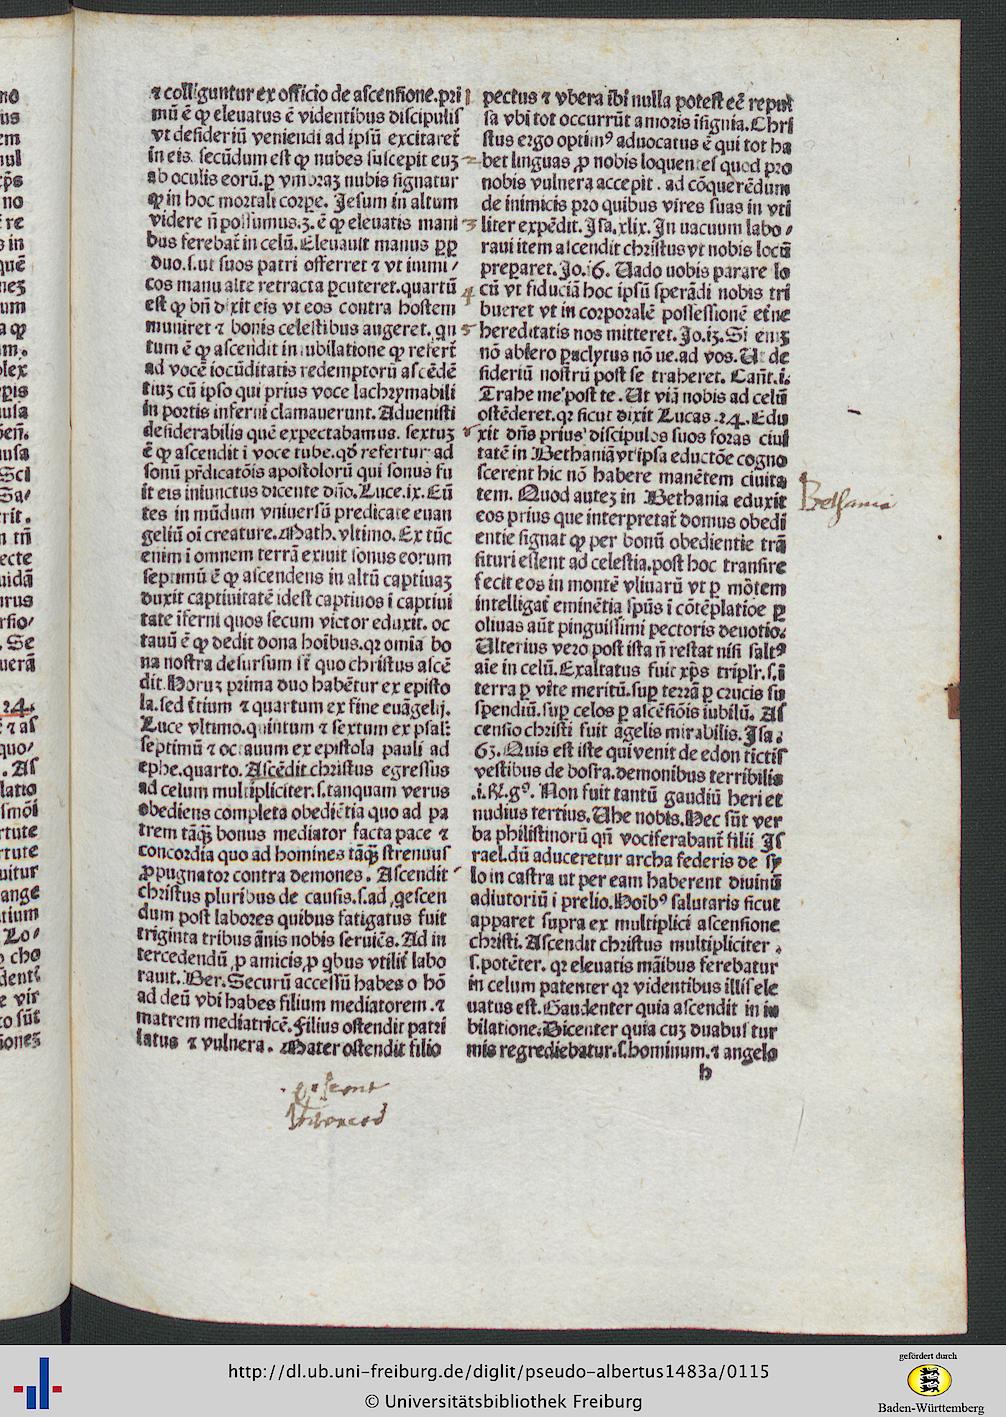 ⁊ colliguntur ex officio de ascensione.pri
mū ē ꝙ eleuatus ē videntibus discipulis
vt desideriū veniendi ad ipsū excitaret᷑
in eis. secūdum est ꝙ nubes suscepit euꝫ
ab oculis eorū.ꝑ vmbraꝫ nubis signatur
ꝙ in hoc mortali corpe. Jesum in altum
videre nō possumus.3. ē ꝙ eleuatis mani
bus ferebat᷑ in celū. Eleuauit manus ꝓꝑ
duo.s.ut suos patri offerret ⁊ vt inimi/
cos manu alte retracta ꝑcuteret.quartū
est ꝙ bn̄ dixit eis vt eos contra hostem
muniret ⁊ bonis celestibus augeret. qn
tum ē ꝙ ascendit in iubilatione ꝙ refert᷑
ad vocē iocūditatis redemptorū ascēdē
tiuꝫ cū ipso qui prius voce lachrymabili
in portis inferni clamauerunt. Aduenisti
desiderabilis quē expectabamus. sextuꝫ
ē ꝙ ascendit i voce tube.qd̄ refertur ad
sonū pr̄dicatōis apostolorū qui sonus fu
it eis iniunctus dicente dn̄o. Luce.ix. Eū
tes in mūdum vniuersū predicate euan
geliū oī creature. Math. vltimo. Ex tūc
enim i omnem terrā exiuit sonus eorum
septimū ē ꝙ ascendens in altū captiuaꝫ
duxit captiuitatē idest captiuos i captiui
tate īferni quos secum victor eduxit. oc
tauū ē ꝙ dedit dona hoībus.qꝛ omia bo
na nostra desursum st̄ quo christus ascē
dit. Horuꝫ prima duo habētur ex episto
la.sed t̄tium ⁊ quartum ex fine euāgelij.
Luce vltimo.quintum ⁊ sextum ex psal:
septimū ⁊ octauum ex epistola pauli ad
ephe.quarto. Ascēdit christus egressus
ad celum multipliciter.s.tanquam verus
obediens completa obediētia quo ad pa
trem tāꝗ bonus mediator facta pace ⁊
concordia quo ad homines tāꝗ strenuus
ꝓpugnator contra demones. Ascendit
christus pluribus de causis.s.ad qescen
dum post labores quibus fatigatus fuit
triginta tribus ānis nobis seruiēs. Ad in
tercedendū ꝓ amicis ꝓ qbus vtilit᷑ labo
rauit. Ber. Securū accessū habes o hō
ad deū vbi habes filium mediatorem.⁊
matrem mediatricē. Filius ostendit patri
latus ⁊ vulnera. Mater ostendit filio
pectus ⁊ vbera ibi nulla potest eē repul
sa vbi tot occurrūt amoris īsignia. Chri
stus ergo optimꝰ aduocatus ē qui tot ha
bet linguas ꝓ nobis loquentes quod pro
nobis vulnera accepit. ad cōquerēdum
de inimicis pro quibus vires suas in vti
liter expēdit. Jsa.xlix. Jn uacuum labo/
raui item ascendit christus vt nobis locū
preparet. Jo.i6. Uado uobis parare lo
cū vt fiduciā hoc ipsū sperādi nobis tri
bueret vt in corporalē possessionē etne
hereditatis nos mitteret. Jo.i3. Si eniꝫ
nō abiero paclytus nō ue.ad vos. Ut de
sideriū nostrū post se traheret. Cant̄.i.
Trahe me post te. Ut viā nobis ad celū
ostēderet.qꝛ sicut dixit Lucas.24. Edu
xit dn̄s prius discipulos suos foras ciui
tatē in Bethaniā vt ipsa eductōe cogno
scerent hic nō habere manētem ciuita
tem. Quod auteꝫ in Bethania eduxit
eos prius que interpretat᷑ domus obedi
entie signat ꝙ per bonū obedientie trā
situri essent ad celestia.post hoc transire
fecit eos in montē vliuarū vt ꝑ mōtem
intelligat᷑ eminētia spūs i cōtēplatioe ꝑ
oliuas aūt pinguissimi pectoris deuotio.
Ulterius vero post ista n̄ restat nisi saltꝰ
aīe in celū. Exaltatus fuit xp̄s triplr.s.ī
terra ꝑ vite meritū.suꝑ terrā ꝑ crucis su
spendiū.suꝑ celos ꝑ ascēsiōis iubilū. As
censio christi fuit āgelis mirabilis. Jsa.
63. Quis est iste qui venit de edon tictis
vestibus de bosra.demonibus terribilis
.i.R̄.gꝰ. Non fuit tantū gaudiū heri et
nudius tertius. Uhe nobis. Hec sūt ver
ba philistinorū qn̄ vociferabant᷑ filii Js
rael.dū aduceretur archa federis de sy
lo in castra ut per eam haberent diuinū
adiutoriū i prelio. Hoībꝰ salutaris sicut
apparet supra ex multiplici ascensione
christi. Ascendit christus multipliciter.
s.potēter. qꝛ eleuatis māibus ferebatur
in celum patenter qꝛ videntibus illis ele
uatus est. Gaudenter quia ascendit in iu
bilatione. Dicenter quia cuꝫ duabus tur
mis regrediebatur.s.hominum.⁊ angelo
h
1
2
3
4
5
6
Bethania
http://dl.ub.uni-freiburg.de/diglit/pseudo-albertus1483a/0115
© Universitätsbibliothek Freiburg
gefördert durch
Baden-Württemberg